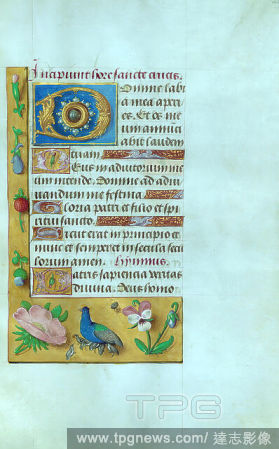 Incipiunt hore sancte crucis.
Domine labi
a mea aperi
es. Et os me
um annūci
abit laudem
tuam.
Deus in adiutorium me
um intende. Domine ad adiu
uandum me festina
Gloria patri et filio et spi
ritui sancto
Sicut erat in principio et
nunc et semper et in secula secu
lorum amen. Hymnus.
Patris sapiencia veritas
divina. Deus homo
TPG
www.tpgnews.com/ 達志影像